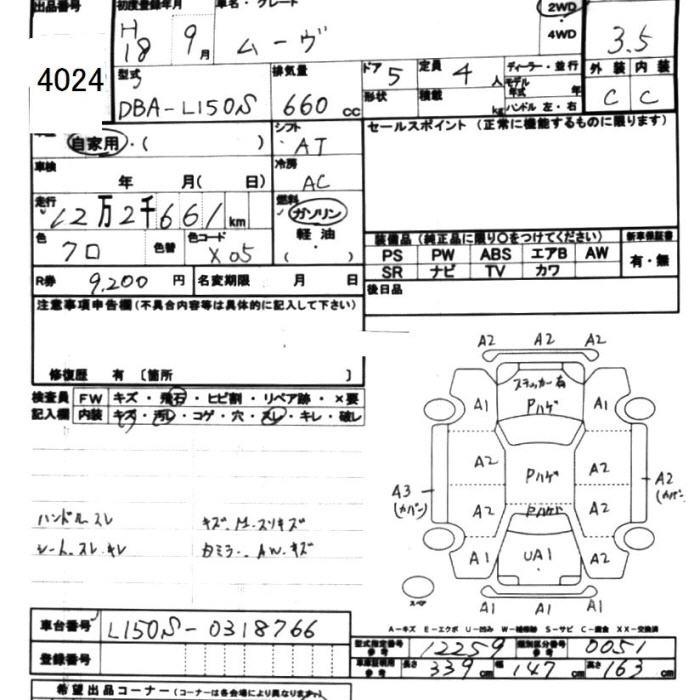 出品番号 初度登録年月 車名・グレード 2WD
4024
H18 9月 ムーヴ ・ 4WD 3.5
型式 排気量 ドア 5 定員 4人 ディーラー・並行 外装 内装
DBA-L150S 660cc 形状 積載 kg モデル年式 年 C C
ハンドル 左・右
自家用・( ) シフト AT セールスポイント(正常に機能するものに限ります)
車検 冷房
年 月( 日) AC
走行 燃料
12万2千661km ガソリン
色 色替 色コード 軽油
クロ X05 ( ・ )
装備品(純正品に限り○をつけてください) 新車保証書
PS PW ABS エアB AW 有・無
SR ナビ TV カワ
R券 9,200円 名変期限 月 日 後日品
注意事項申告欄(不具合内容等は具体的に記入して下さい)
修復歴 有 〔箇所 〕
検査員 FW キズ・飛石・ヒビ割・リペア跡・×要
記入欄 内装 キズ・汚レ・コゲ・穴・スレ・キレ・破レ
A2 A2 A2
ステッカー有
A1 Pハゲ A1
A2 Pハゲ A2
A3 (カバー) A2 (カバー)
A2 Pハゲ A2
A1 UA1 A2
A1 A1
スペア
ハンドルスレ キズ、M.スリキズ
シート、スレ、キレ カミラー、AW.キズ
A-キズ E-エクボ U-凹み W-補修跡 S-サビ C-腐食 XX-交換済
車台番号 L150S-0318766
登録番号
型式指定番号 参考 12259 類別区分番号 参考 0051
車庫証明用 参考 長さ 339cm 幅 147cm 高さ 163cm
希望出品コーナー(コーナーは各会場により異なります)